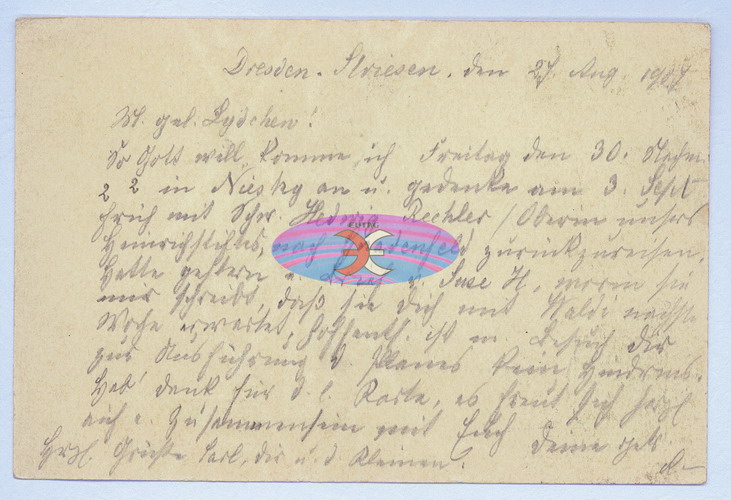 Dresden-Striesen, den 27. Aug. 1907
M. gel. Lydchen!
So Gott will, komme ich Freitag den 30. Nachm.
2 2 in Niesky an u. gedenke am 3. Sept
früh mit Schw. Hedwig Rechler (Oberin unsers
Heinrichstiftes, nach Gnadenfeld zurückzureisen.
Hatte gestern Suse H., worin sie
mir schreibt, daß sie Dich mit Waldi nächste
Woche erwartet, hoffentl. ist m. Besuch Dir
zur Ausführung d. Planes kein Hindernis.
Hab' Dank für d. l. Karte, es freut sich herzl
auf e. Zusammensein mit Euch Deine
Herzl. Grüße Carl, Dir u. d. Kleinen!